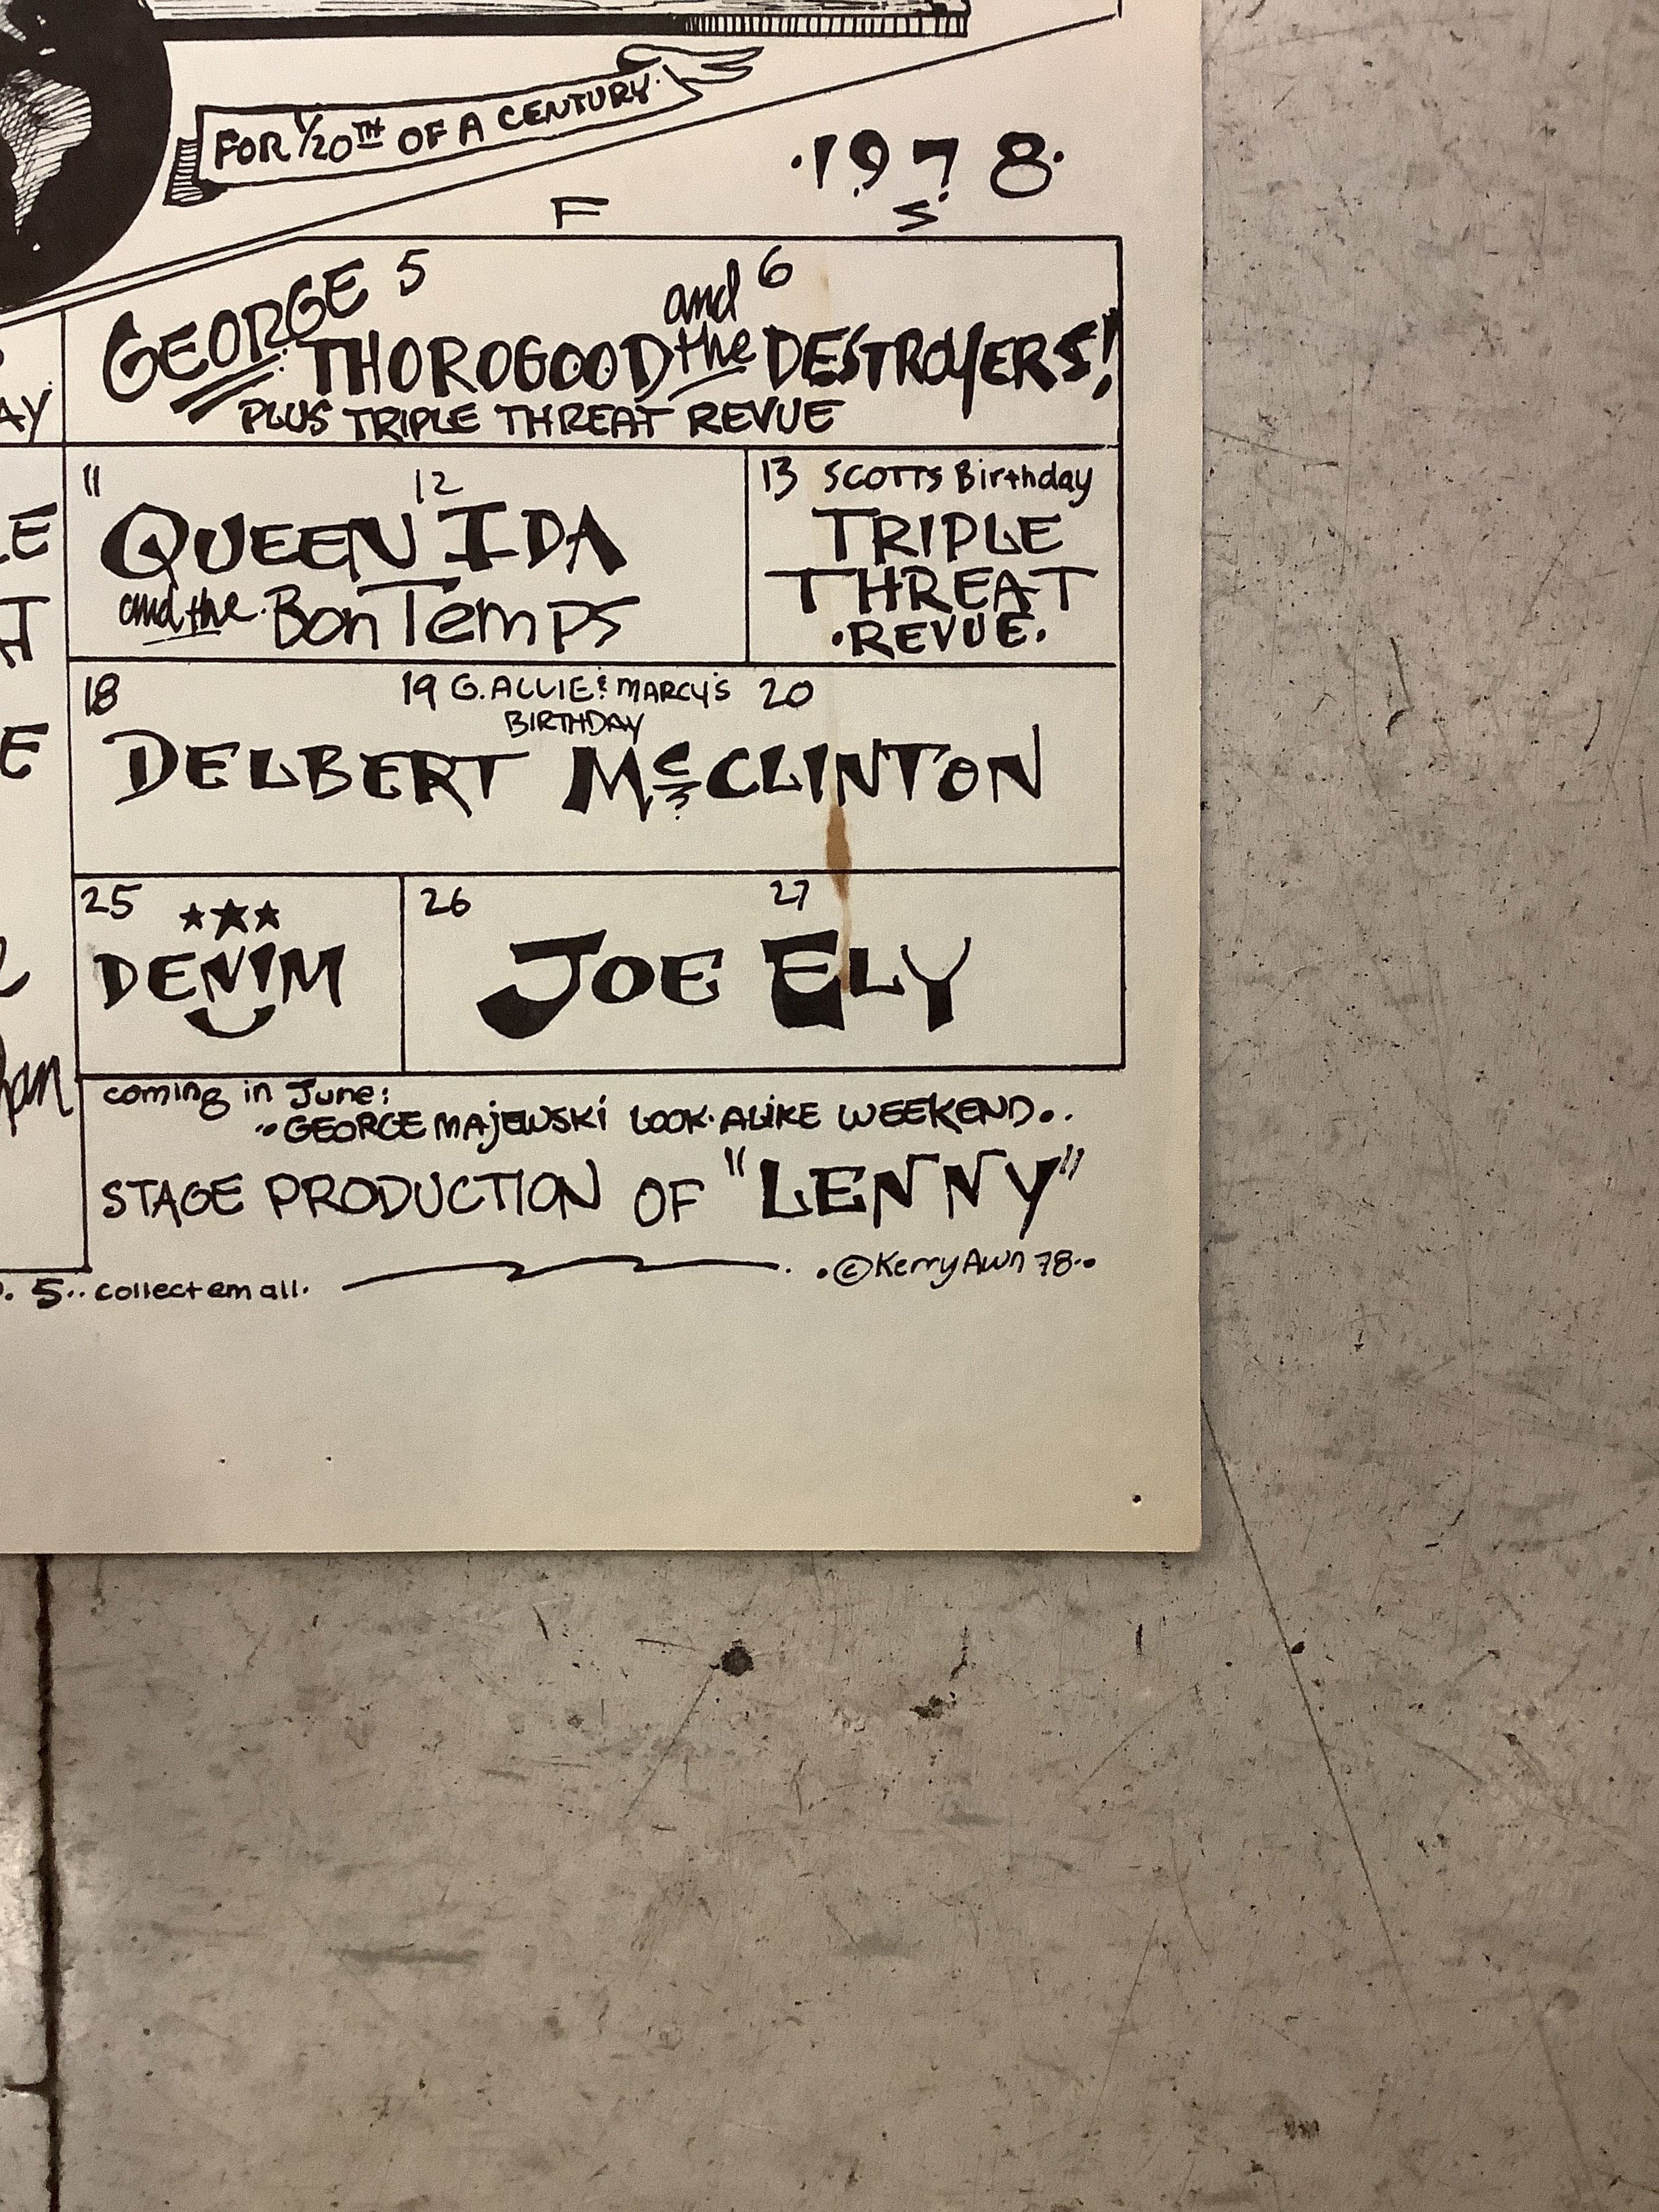 FOR 1/20TH OF A CENTURY.
·1978·
F S
5 and 6
GEORGE THOROGOOD the DESTROYERS!
PLUS TRIPLE THREAT REVUE
AY
11 12
QUEEN IDA
and the BON TEMPS
13 SCOTTS Birthday
TRIPLE
THREAT
·REVUE·
18 19 G. ALLIE & MARCY'S 20
BIRTHDAY
DELBERT McCLINTON
25
DENIM
26 27
JOE ELY
coming in June:
·· GEORGE MAJEWSKI LOOK·ALIKE WEEKEND··
STAGE PRODUCTION OF "LENNY"
5·· collect em all.
·©Kerry Awn 78··